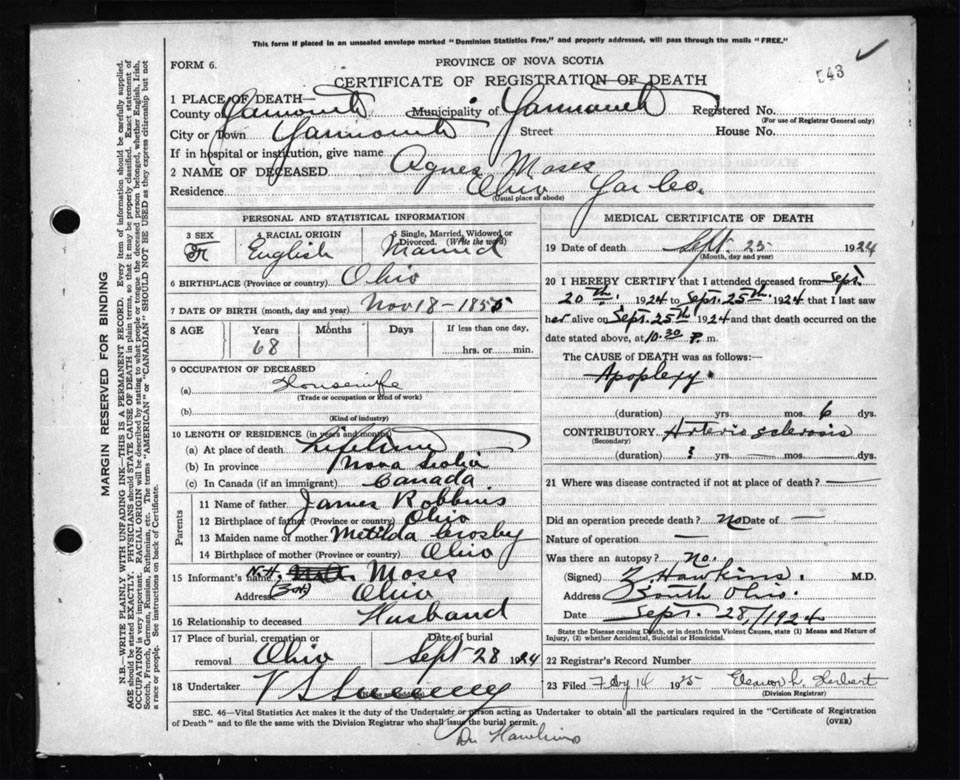 This form if placed in an unsealed envelope marked "Dominion Statistics Free," and properly addressed, will pass through the mails "FREE."
FORM 6.
PROVINCE OF NOVA SCOTIA
543
CERTIFICATE OF REGISTRATION OF DEATH
1 PLACE OF DEATH—
County of Yarmouth Municipality of Yarmouth Registered No.
(For use of Registrar General only)
City or Town Yarmouth Street House No.
If in hospital or institution, give name
2 NAME OF DECEASED Agnes Moses
Residence Ohio Yar Co.
(Usual place of abode)
PERSONAL AND STATISTICAL INFORMATION
3 SEX 4 RACIAL ORIGIN 5 Single, Married, Widowed or Divorced. (Write the word)
F English Married
6 BIRTHPLACE (Province or country) Ohio
7 DATE OF BIRTH (month, day and year) Nov 18 - 1855
8 AGE Years Months Days If less than one day,
68 hrs. or min.
9 OCCUPATION OF DECEASED
(a) Housewife
(Trade or occupation or kind of work)
(b)
(Kind of industry)
10 LENGTH OF RESIDENCE (in years and months)
(a) At place of death Lifetime
(b) In province Nova Scotia
(c) In Canada (if an immigrant) Canada
Parents
11 Name of father James Robbins
12 Birthplace of father (Province or country) Ohio
13 Maiden name of mother Metilda Crosby
14 Birthplace of mother (Province or country) Ohio
15 Informant's name N.H. Moses
Address Ohio
16 Relationship to deceased Husband
17 Place of burial, cremation or removal Ohio Date of burial Sept 28 1924
18 Undertaker
MEDICAL CERTIFICATE OF DEATH
19 Date of death Sept. 25 1924
(Month, day and year)
20 I HEREBY CERTIFY that I attended deceased from Sept.
20th. 1924 to Sept. 25th. 1924 that I last saw
her alive on Sept. 25th 1924 and that death occurred on the
date stated above, at 10.30 P. m.
The CAUSE OF DEATH was as follows:
Apoplexy.
(duration) yrs. mos. 6 dys.
CONTRIBUTORY Arterio sclerosis
(Secondary)
(duration) ? yrs. — mos. — dys.
21 Where was disease contracted if not at place of death? —
Did an operation precede death? no Date of —
Nature of operation —
Was there an autopsy? no.
(Signed) Z. Hawkins. M.D.
Address South Ohio.
Date Sept. 28/1924
State the Disease causing Death, or in death from Violent Causes, state (1) Means and Nature of Injury, (2) whether Accidental, Suicidal or Homicidal.
22 Registrar's Record Number
23 Filed Feby 14 1925 Eleanor L. Herbert
(Division Registrar)
SEC. 46—Vital Statistics Act makes it the duty of the Undertaker or person acting as Undertaker to obtain all the particulars required in the "Certificate of Registration
of Death" and to file the same with the Division Registrar who shall issue the burial permit. (OVER)
Dr Hawkins
MARGIN RESERVED FOR BINDING
N.B.—WRITE PLAINLY WITH UNFADING INK—THIS IS A PERMANENT RECORD. Every item of information should be carefully supplied.
AGE should be stated EXACTLY. PHYSICIANS should STATE CAUSE OF DEATH in plain terms, so that it may be properly classified. Exact statement of
OCCUPATION is very important. RACIAL ORIGIN will be described by stating to what people or tongue the deceased person belonged, whether English, Irish,
Scotch, French, German, Russian, Ruthenian, etc. The terms "AMERICAN" or "CANADIAN" SHOULD NOT BE USED as they express citizenship but not
a race or people. See instructions on back of Certificate.